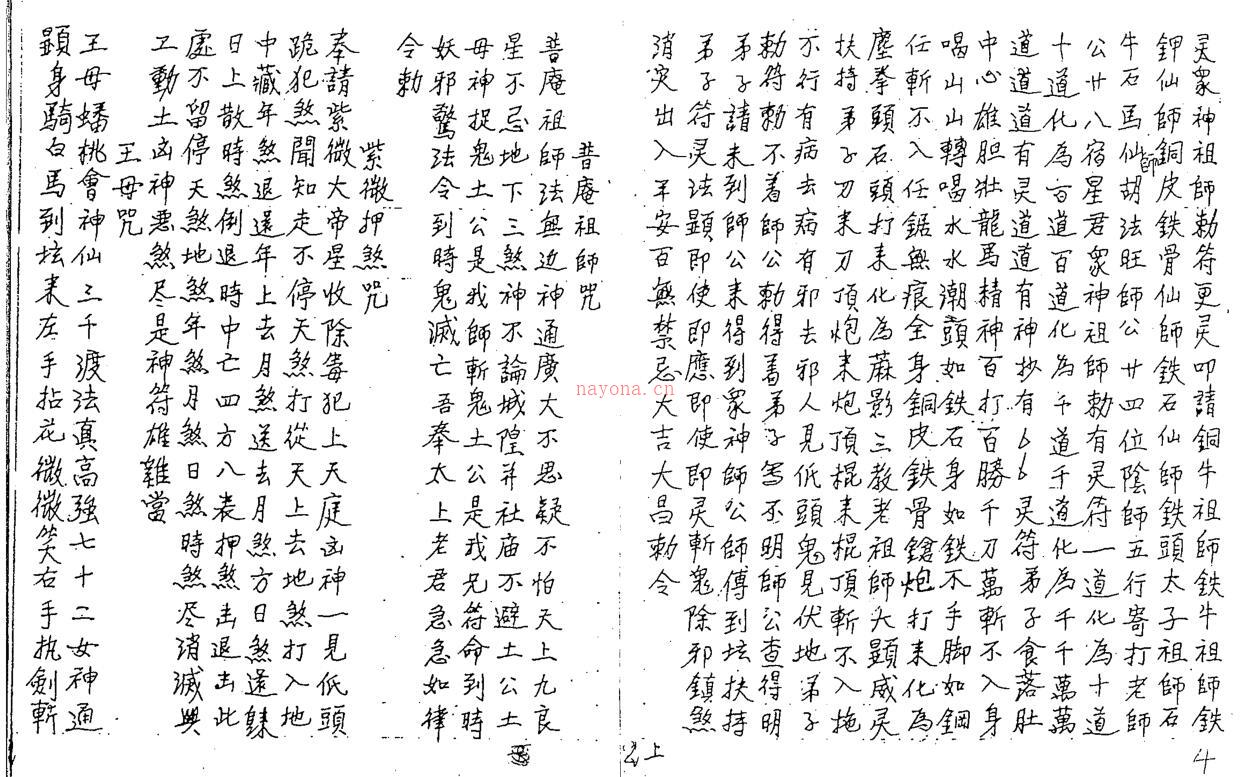 灵眾神祖師勅符更灵叩請銅牛祖師鉄牛祖師鉄
鉀仙師銅皮鉄骨仙師鉄石仙師鉄頭太子祖師石
牛石馬仙師胡法旺師公廿四位陰師五行寄打老師
公廿八宿星君眾神祖師勅有灵符一道化為十道
十道化為百道百道化為千道千道化為千千萬萬
道道道道有灵道道有神抄有66灵符弟子食落肚
中心雄胆壯龍馬精神百打百勝千刀萬斬不入身
喝山山轉喝水水潮頭如鉄石身如鉄不手脚如鋼
任斬不入任鋸無痕全身銅皮鉄骨鎗炮打来化為
塵拳頭石頭打来化為蔴影三教老祖師大顕威灵
扶持弟子刀来刀頂炮来炮頂棍来棍頂斬不入拖
不行有病去病有邪去邪人見低頭鬼見伏地弟子
勅符勅不着師公勅得着弟子写不明師公查得明
弟子請未到師公来得到眾神師公師傅到坛扶持
弟子符灵法顕即使即應即使即灵斬鬼除邪鎮煞
消灾出入平安百無禁忌大吉大昌勅令
普庵祖師咒
普庵祖師法無边神通廣大不思疑不怕天上九良
星不忌地下三煞神不論城隍并社庙不避土公土
母神捉鬼土公是我師斬鬼土公是我兄符命到時
妖邪驚法令到時鬼滅亡吾奉太上老君急急如律
令勅
紫微押煞咒
奉請紫微大帝星收除毒犯上天庭凶神一見低頭
跪犯煞聞知走不停天煞打從天上去地煞打入地
中藏年煞退還年上去月煞送去月煞方日煞還歸
日上散時煞倒退時中亡四方八表押煞击退击此
處不留停天煞地煞年煞月煞日煞時煞尽消滅興
工動土凶神悪煞尽是神符雄難當
王母咒
王母蟠桃會神仙三千渡法真高強七十二女神通
顕身騎白馬到坛来左手拈花微微笑右手执劍斬
nayona.cn
上
4